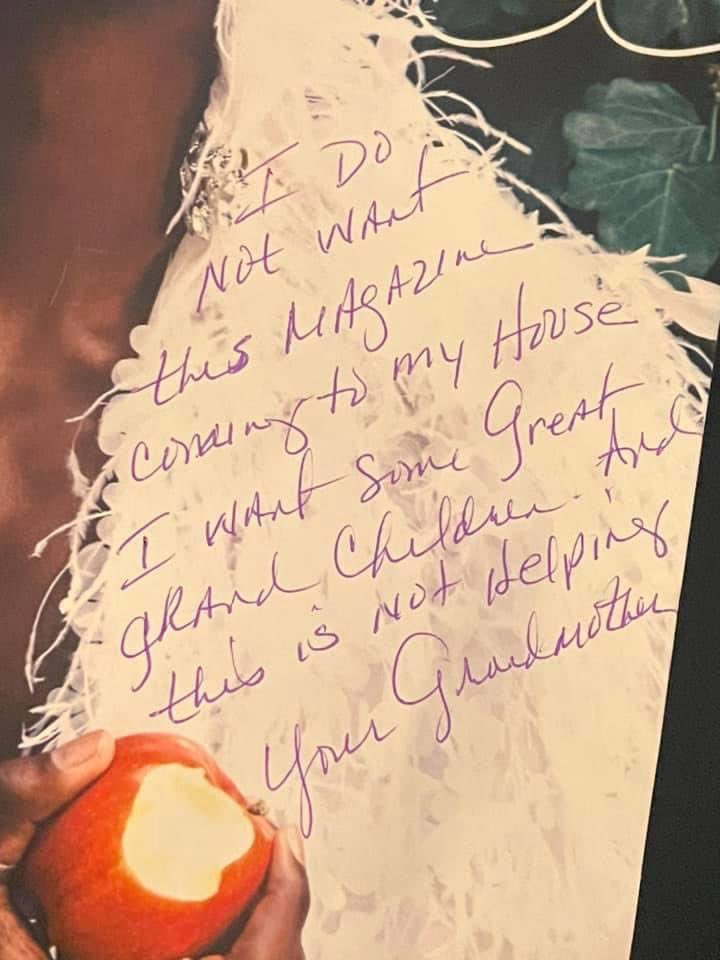 I DO
NOt WANt
this MAgAZine
coming to my House
I WANt Some Great
gRANd Children. And
this is Not Helping
Your Grandmother